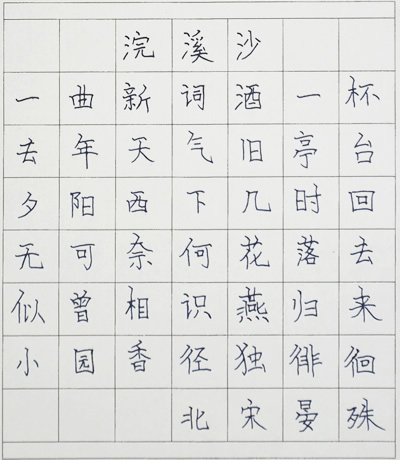 浣溪沙
一曲新词酒一杯
去年天气旧亭台
夕阳西下几时回
无可奈何花落去
似曾相识燕归来
小园香径独徘徊
北宋晏殊